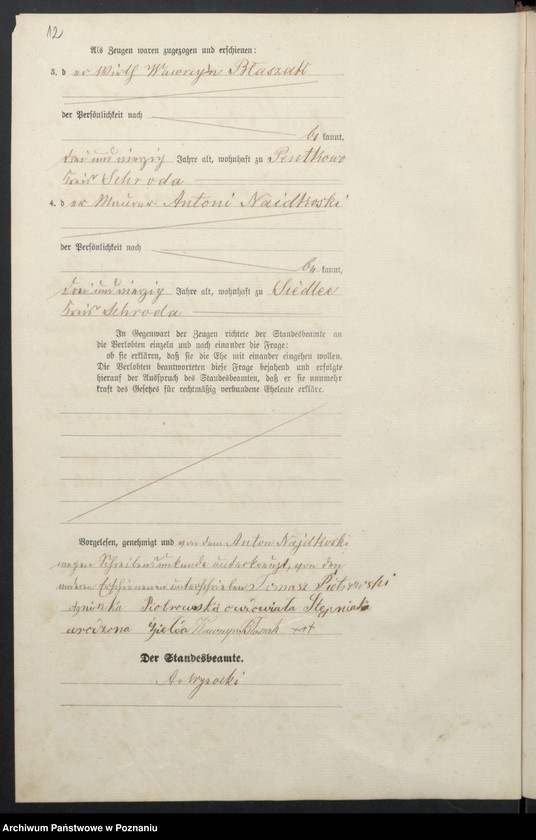 12
Als Zeugen waren zugezogen und erschienen:
3. d er Wirth Wawrzyn Błaszak
der Persönlichkeit nach
be kannt,
drei und vierzig Jahre alt, wohnhaft zu Pentkowo
Kreis Schroda
4. d er Maurer Antoni Naidkowski
der Persönlichkeit nach
be kannt,
drei und vierzig Jahre alt, wohnhaft zu Siedlec
Kreis Schroda
In Gegenwart der Zeugen richtete der Standesbeamte an
die Verlobten einzeln und nach einander die Frage:
ob sie erklären, daß sie die Ehe mit einander eingehen wollen.
Die Verlobten beantworteten diese Frage bejahend und erfolgte
hierauf der Ausspruch des Standesbeamten, daß er sie nunmehr
kraft des Gesetzes für rechtmäßig verbundene Eheleute erkläre.
Vorgelesen, genehmigt und von dem Anton Najdkoski
wegen Schreibensunkunde unterkreuzt, von den
anderen Erschienenen unterschrieben Tomasz Piotrowski
Agniszka Piotrowska owdowiała Stępniak
urodzona Wawrzyn Błaszak +++
Der Standesbeamte.
A. Wysocki
Archiwum Państwowe w Poznaniu